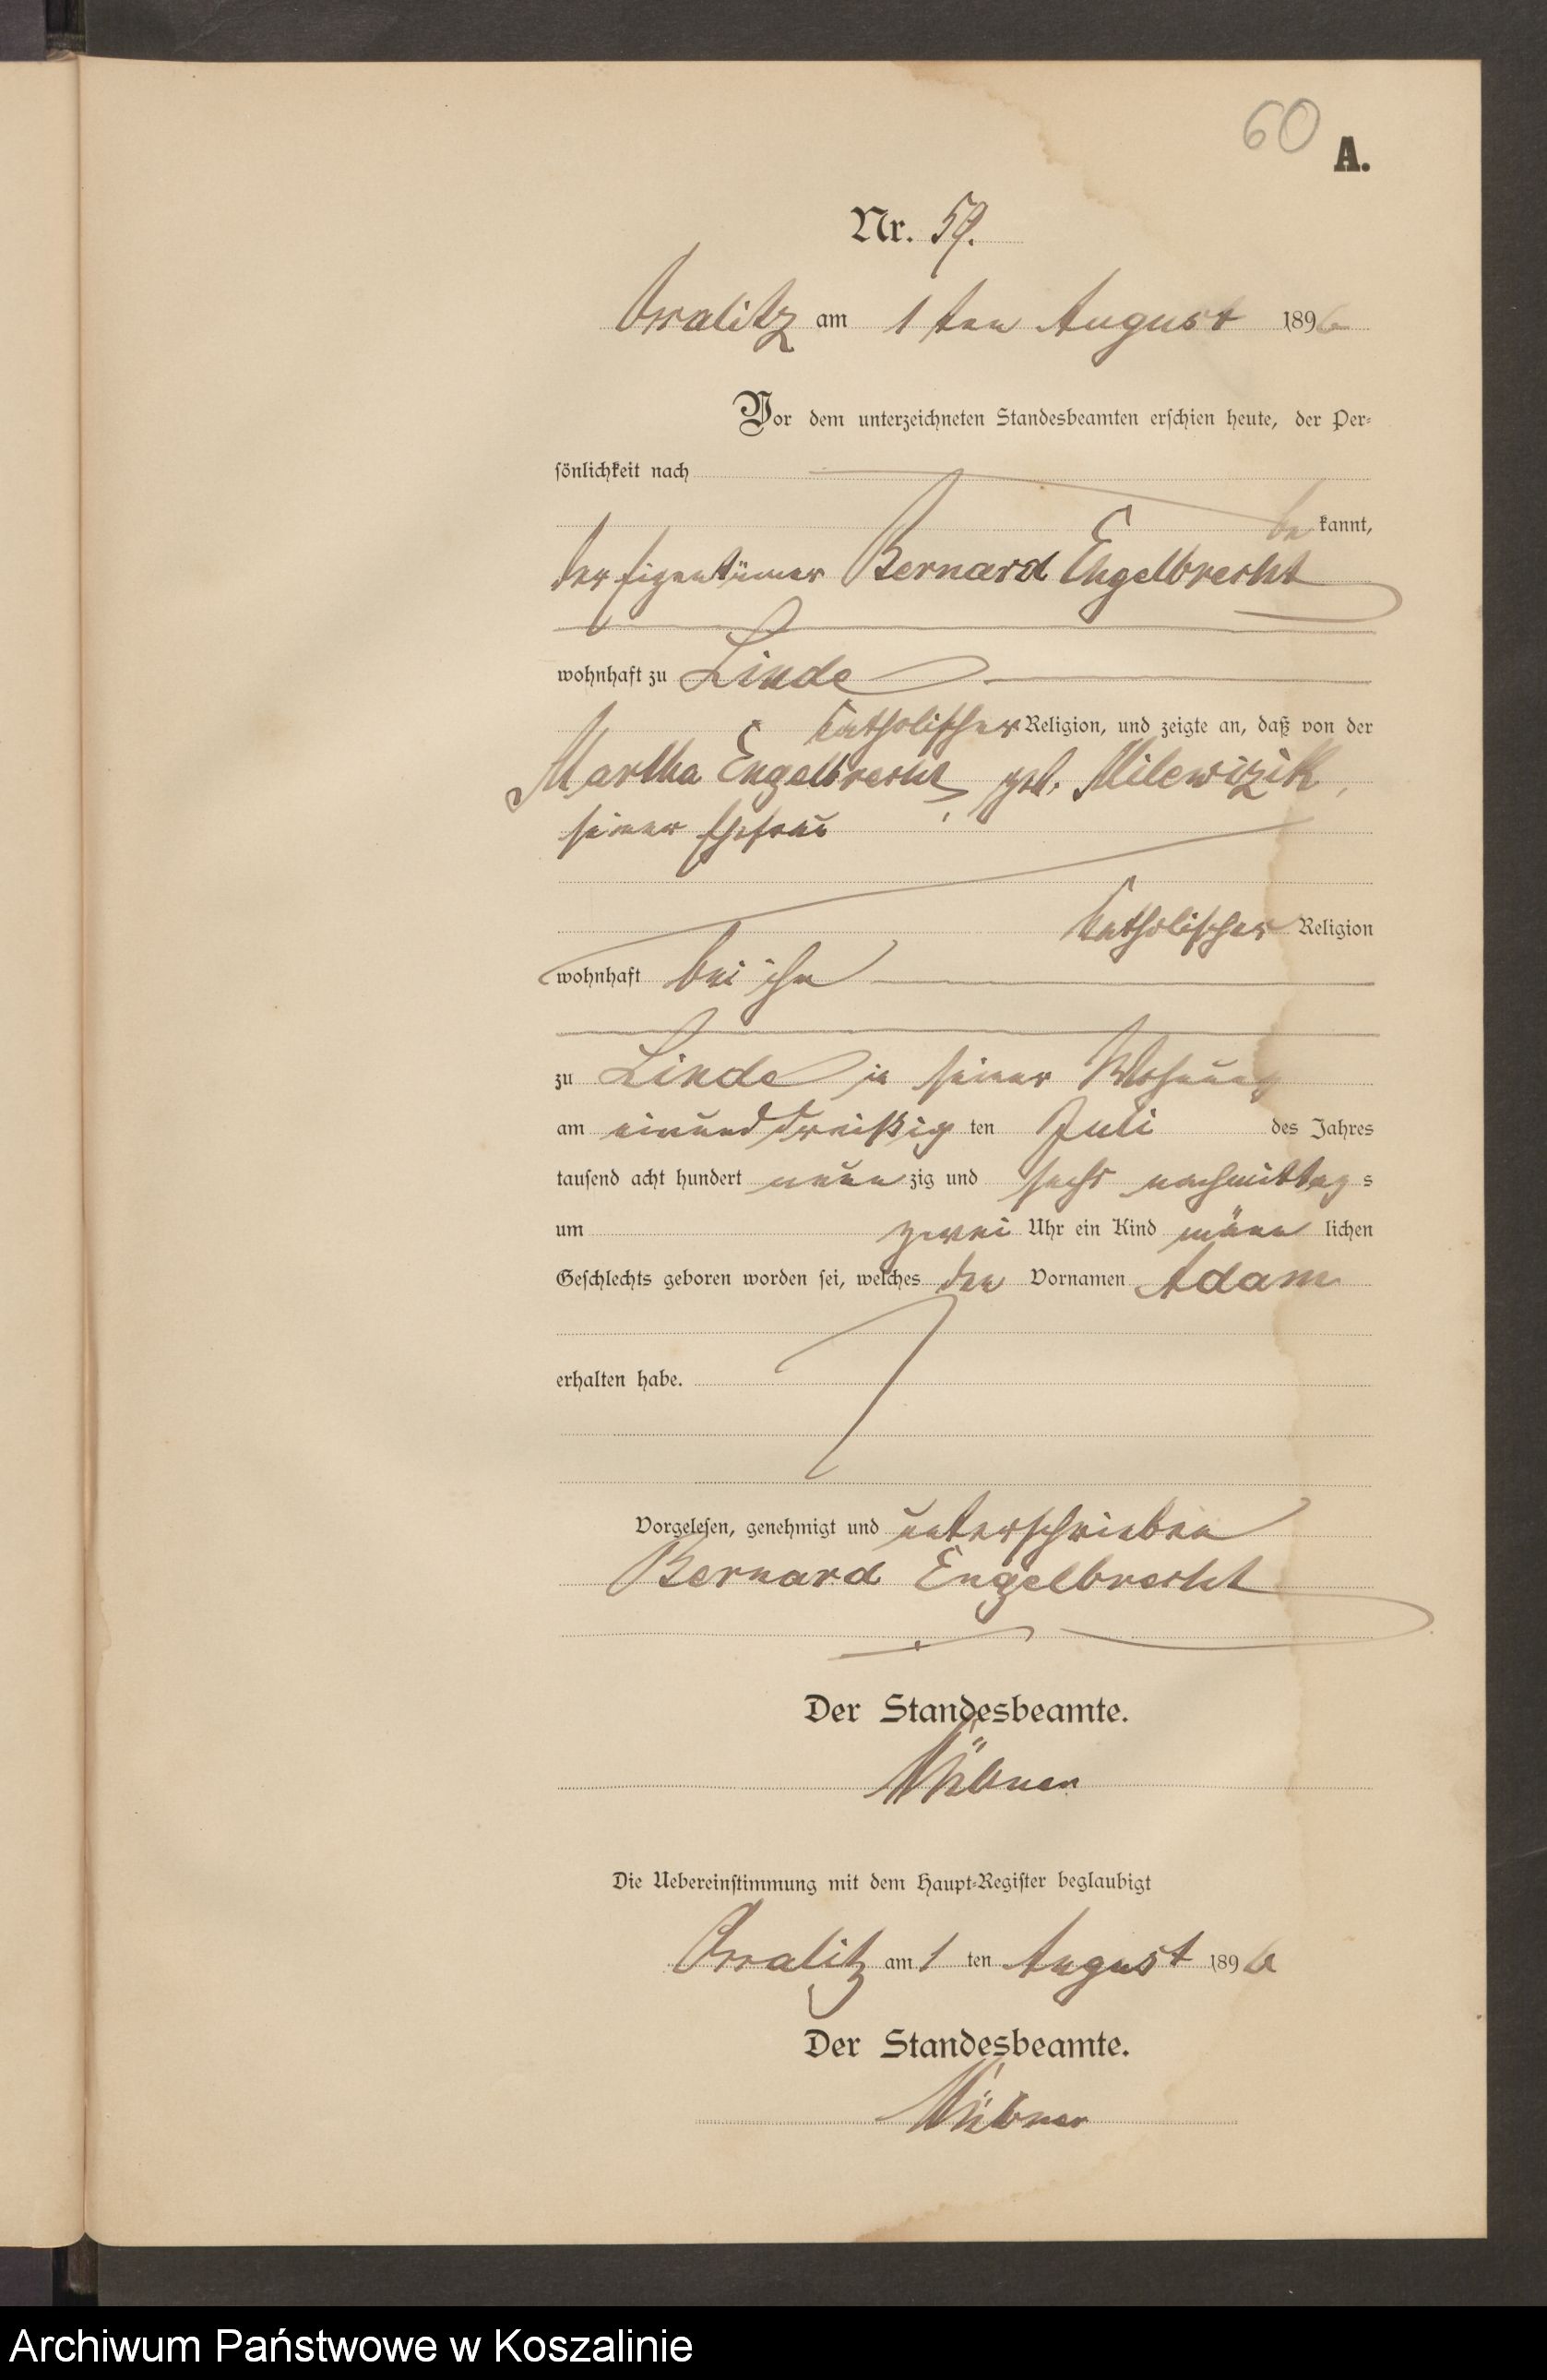 60
A.
Nr. 59.
am 1 ten August 1896
Vor dem unterzeichneten Standesbeamten erschien heute, der Per-
sönlichkeit nach
be kannt,
der Eigentümer Bernard Engelbrecht
wohnhaft zu Linde
katholischer Religion, und zeigte an, daß von der
Martha Engelbrecht, geb. Milewizik,
seiner Ehefrau
katholischer Religion
wohnhaft bei ihm
zu Linde in seiner Wohnung
am einunddreißig ten Juli des Jahres
tausend acht hundert neun zig und sechs nachmittag s
um zwei Uhr ein Kind männ lichen
Geschlechts geboren worden sei, welches den Vornamen Adam
erhalten habe.
Vorgelesen, genehmigt und unterschrieben
Bernard Engelbrecht
Der Standesbeamte.
Die Uebereinstimmung mit dem Haupt-Register beglaubigt
am 1 ten August 1896
Der Standesbeamte.
Archiwum Państwowe w Koszalinie